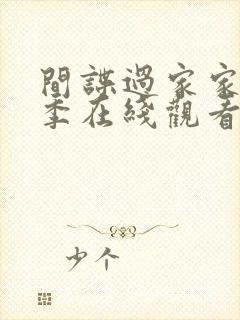 間諜過家家
季在綫觀看
少个